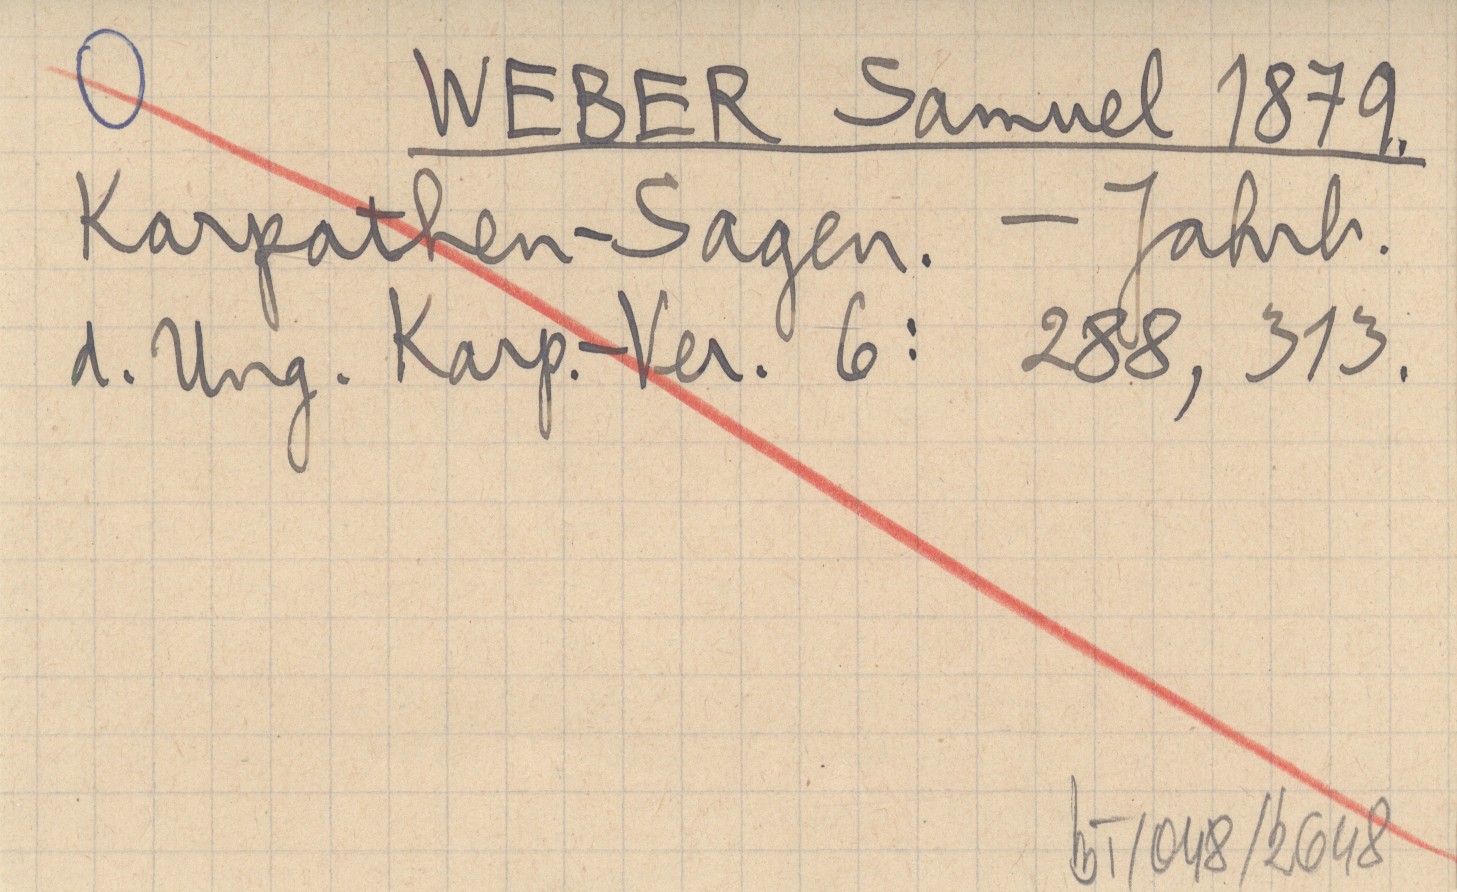 WEBER Samuel 1879.
Karpathen-Sagen. – Jahrb.
d. Ung. Karp.-Ver. 6: 288, 313.